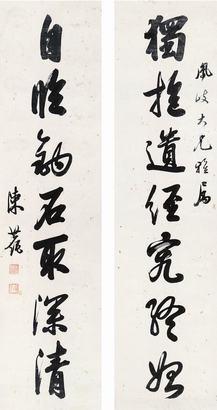 鳳歧大兄雅屬
獨抱遺經究終始
自臨釣石取深清
陳